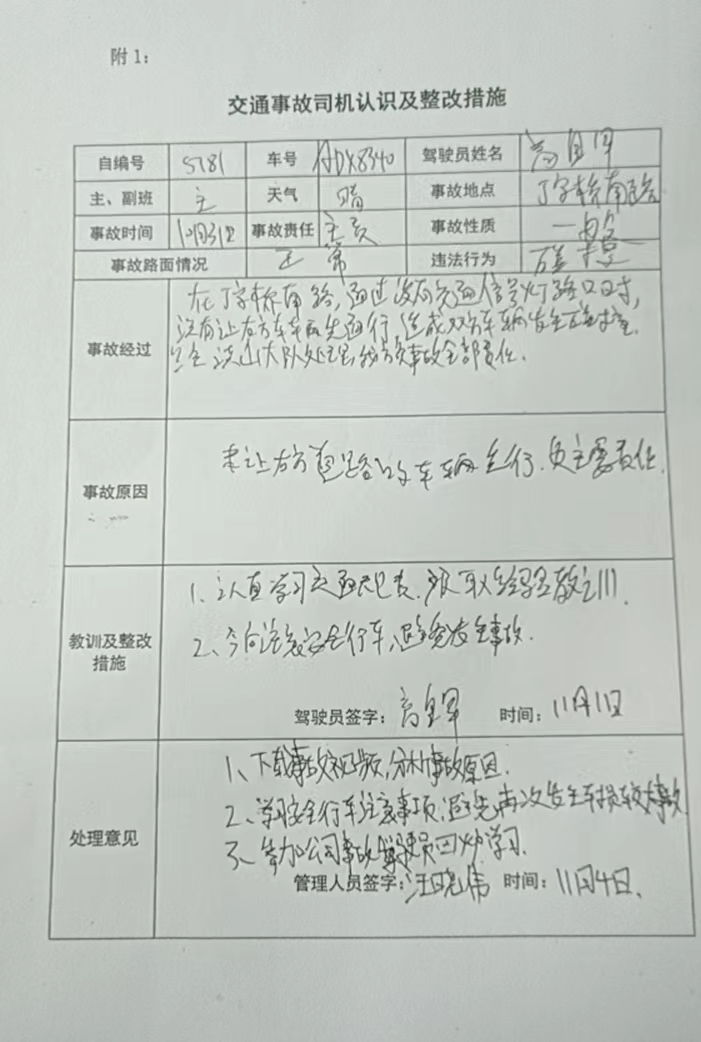 附1：
交通事故司机认识及整改措施
自编号 5781 车号 ADX8340 驾驶员姓名 高自军
主、副班 主 天气 晴 事故地点 丁字桥南路
事故时间 10月31日 事故责任 主责 事故性质 一般
事故路面情况 正常 违法行为 碰撞
事故经过
在丁字桥南路，通过没有交通信号灯路口时，
没有让右方车车辆先通行，造成双方车辆发生碰撞。
洪山大队处理，我方负事故全部责任。
事故原因
未让右方道路的车辆先行，负主要责任。
教训及整改
措施
1、认真学习交通规表，吸取经验教训。
2、今后注意安全行车，避免发生事故。
驾驶员签字：高自军 时间：11月1日
处理意见
1、下载事故视频，分析事故原因。
2、学习安全行车注意事项，避免再次发生车损较大事故
3、参加公司事故驾驶员回炉学习。
管理人员签字：汪晓伟 时间：11月4日.